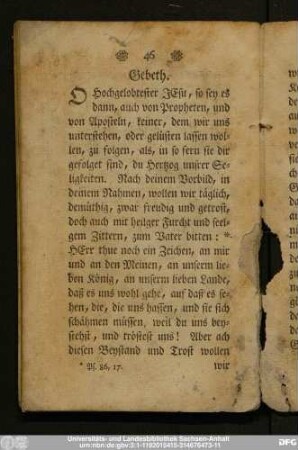 46
Gebeth.
O Hochgelobtester JEsu, so sey es
dann, auch von Propheten, und
von Aposteln, keiner, dem wir uns
unterstehen, oder gelüsten lassen wol-
len, zu folgen, als, in so fern sie dir
gefolget sind, du Hertzog unsrer Se-
ligkeiten. Nach deinem Vorbild, in
deinem Nahmen, wollen wir täglich,
demüthig, zwar freudig und getrost,
doch auch mit heilger Furcht und seel-
gem Zittern, zum Vater bitten: *
HErr thue noch ein Zeichen, an mir
und an den Meinen, an unserm lie-
ben König, an unserm lieben Lande,
daß es uns wohl gehe, auf daß es se-
hen, die, die uns hassen, und sie sich
schähmen müssen, weil du uns bey-
stehst, und tröstest uns! Aber ach
diesen Beystand und Trost wollen
* Ps. 86, 17. wir
Universitäts- und Landesbibliothek Sachsen-Anhalt
urn:nbn:de:gbv:3:1-1192015415-314676473-11
DFG